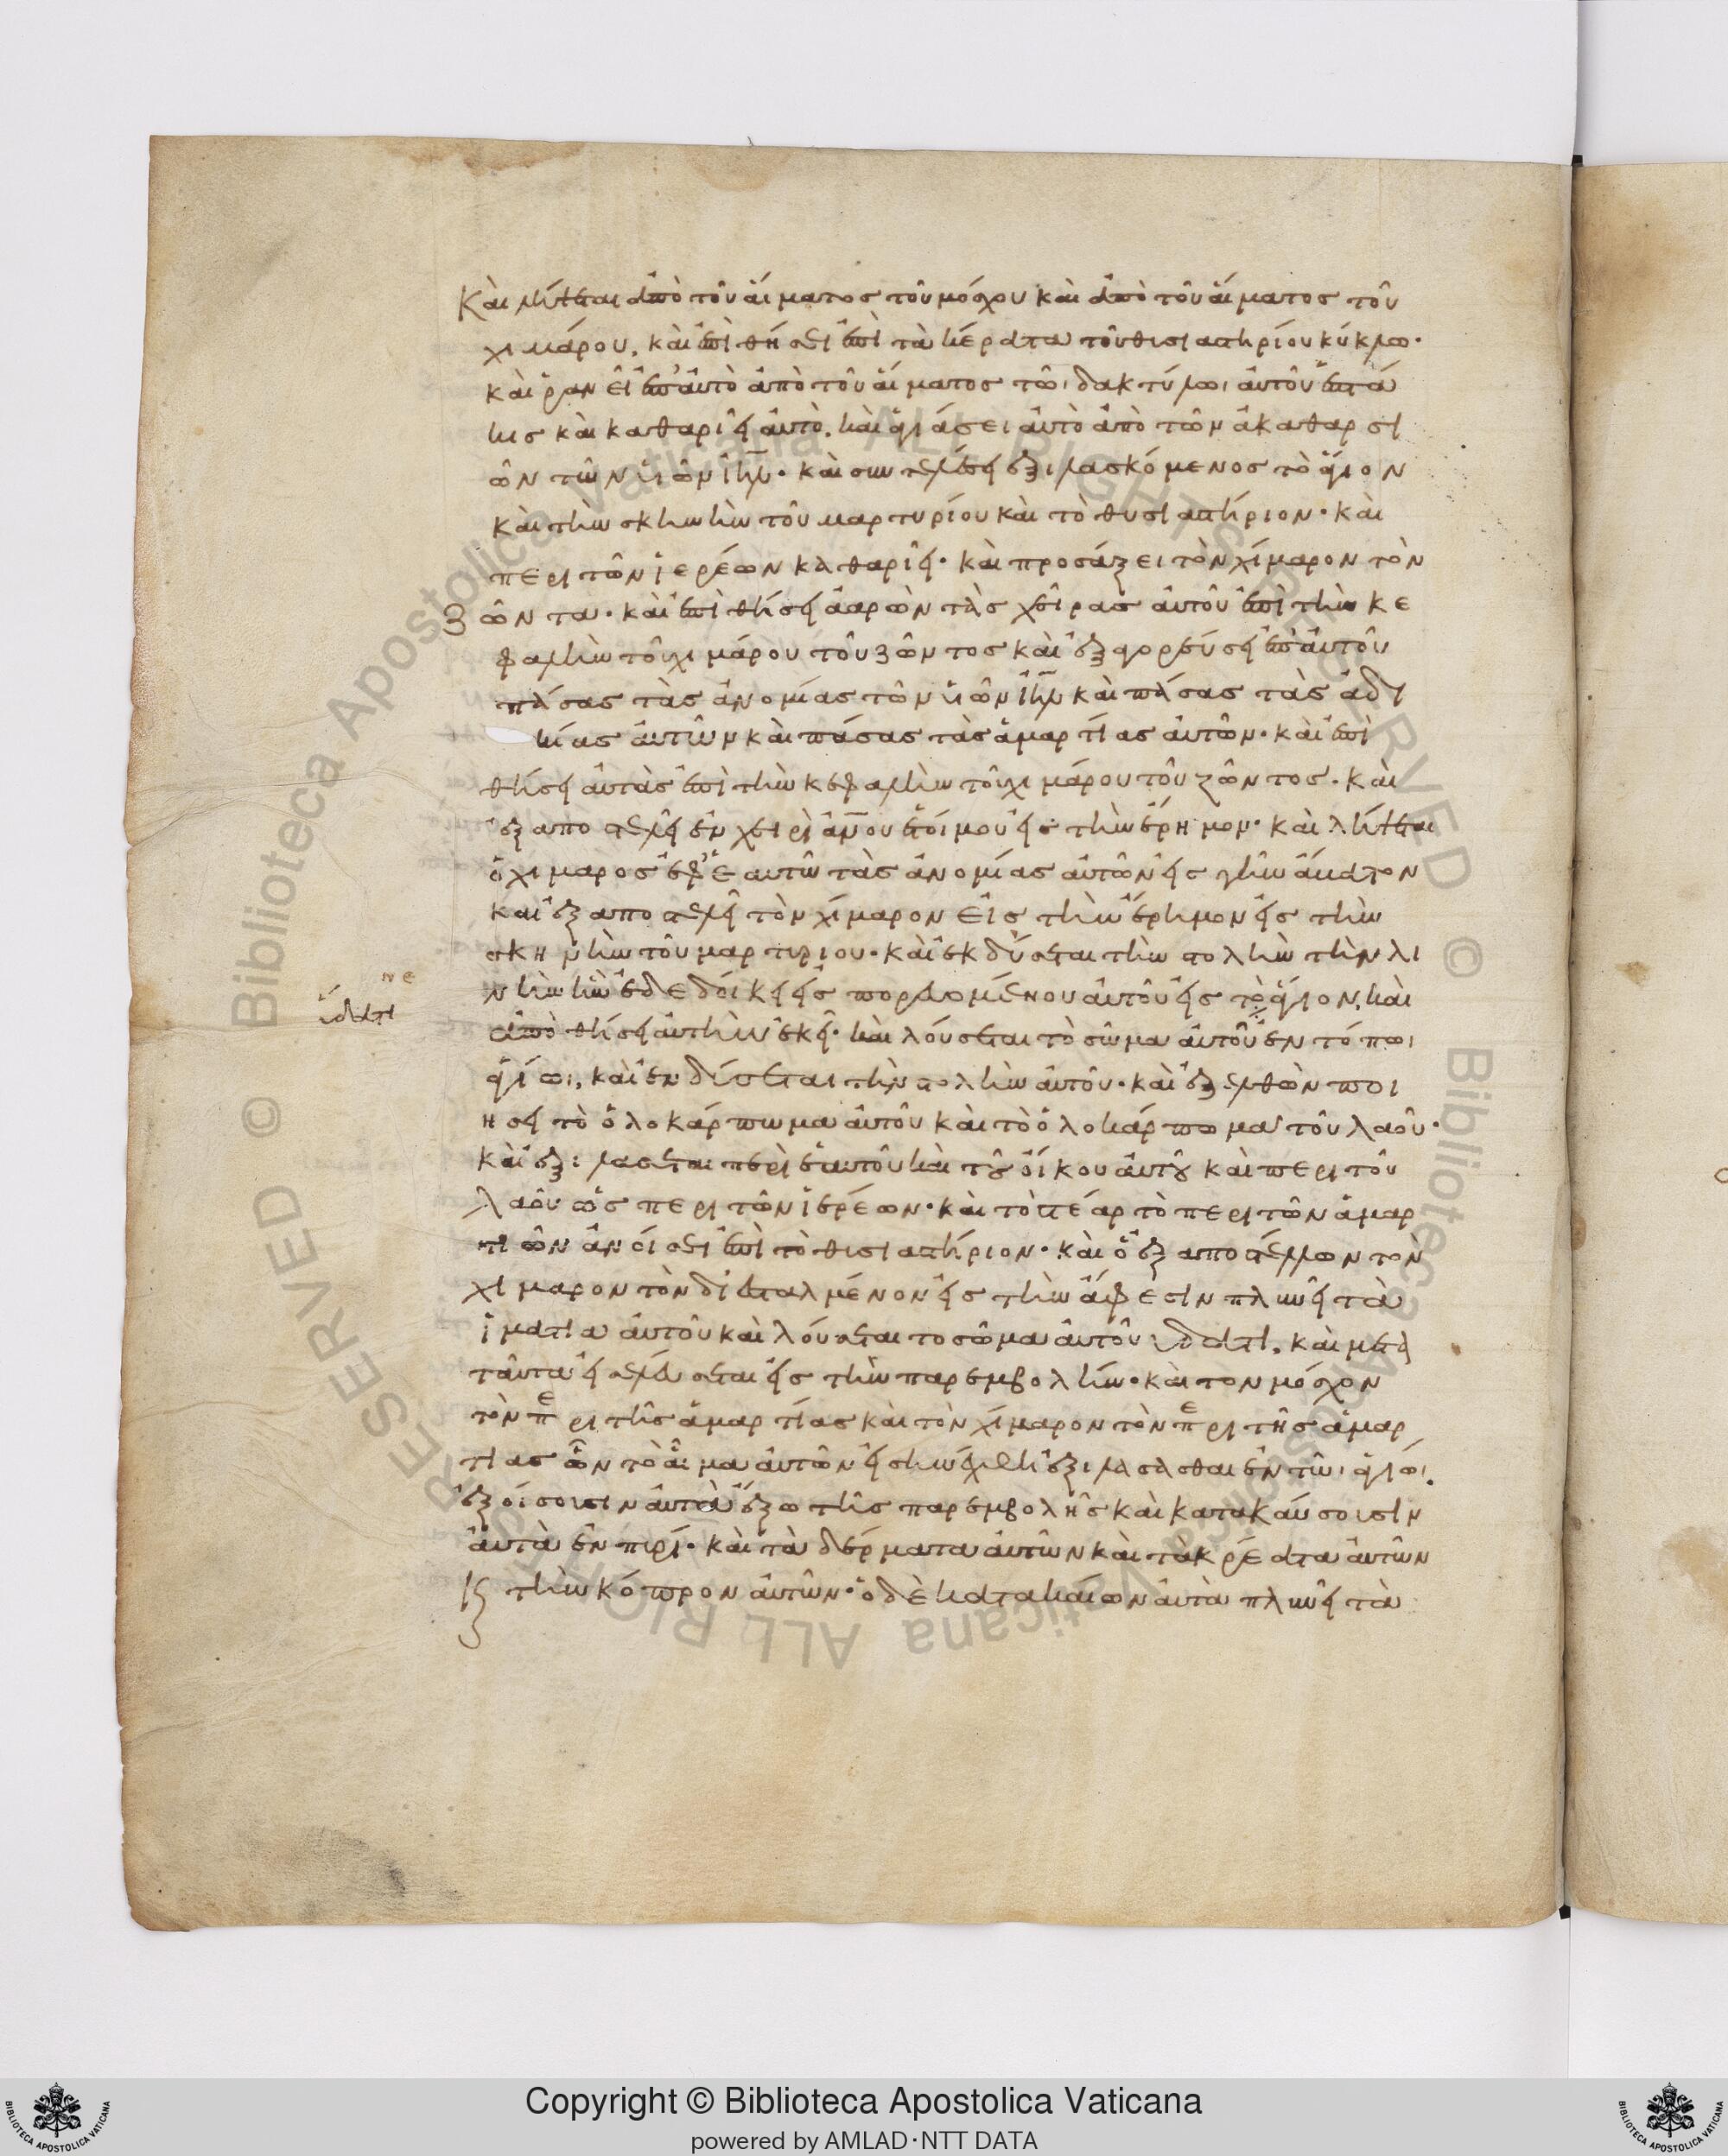 Καὶ λήψεται ἀπὸ τοῦ αἵματος τοῦ μόσχου καὶ ἀπὸ τοῦ αἵματος τοῦ
χιμάρου, καὶ ἐπιθήσει ἐπὶ τὰ κέρατα τοῦ θυσιαστηρίου κύκλω·
καὶ ῥανεῖ ἐπ' αὐτὸ ἀπὸ τοῦ αἵματος τῶι δακτύλωι αὐτοῦ ἑπτά
κις καὶ καθαριεῖ αὐτὸ, καὶ ἁγιάσει αὐτὸ ἀπὸ τῶν ἀκαθαρσι
ῶν τῶν υἱῶν ιηλ· καὶ συντελέσει ἐξιλασκόμενος τὸ ἅγιον
καὶ τὴν σκηνὴν τοῦ μαρτυρίου καὶ τὸ θυσιαστήριον· καὶ
περι τῶν ἱερέων καθαριεῖ· καὶ προσάξει τὸν χίμαρον τὸν
ζῶντα· καὶ ἐπιθήσει ἀαρὼν τὰς χεῖρας αὐτοῦ ἐπὶ τὴν κε
φαλὴν τοῦ χιμάρου τοῦ ζῶντος καὶ ἐξαγορεύσει ἐπ' αὐτοῦ
πάσας τὰς ἀνομίας τῶν υἱῶν ιηλ καὶ πάσας τὰς ἀδι
κίας αὐτῶν καὶ πάσας τὰς ἁμαρτίας αὐτῶν· καὶ ἐπι
θήσει αὐτὰς ἐπὶ τὴν κεφαλὴν τοῦ χιμάρου τοῦ ζῶντος· καὶ
ἐξαποστελεῖ ἐν χειρὶ ἀνου ἑτοίμου εἰς τὴν ἔρημον· καὶ λήψεται
ὁ χίμαρος ἐφ' ἑαυτῶ τὰς ἀνομίας αὐτῶν εἰς γῆν ἄβατον
καὶ ἐξαποστελεῖ τὸν χίμαρον εἰς τὴν ἔρημον εἰς τὴν
σκηνὴν τοῦ μαρτυριου· καὶ ἐκδύσεται τὴν στολὴν τὴν λι
νῆν ἣν ἐδεδοίκει εἰσπορευομένου αὐτοῦ εἰς τὸ ἅγιον, καὶ
ἀποθήσει αὐτὴν ἐκεῖ· καὶ λούσεται τὸ σῶμα αὐτοῦ ἐν τόπωι
ἁγίωι, καὶ ἐνδύσεται τὴν στολὴν αὐτοῦ· καὶ ἐξελθὼν ποι
ήσει τὸ ὁλοκάρπωμα αὐτοῦ καὶ τὸ ὁλοκάρπωμα τοῦ λαοῦ·
καὶ ἐξιλασεται περὶ ἑαυτοῦ καὶ τοῦ οἴκου αὐτοῦ καὶ περι τοῦ
λαοῦ ὡς περι τῶν ἱερέων· καὶ τὸ στέαρ τὸ περι τῶν ἁμαρ
τιῶν ἀνοίσει ἐπὶ τὸ θυσιαστήριον· καὶ ὁ ἐξαποστέλλων τὸν
χίμαρον τὸν διεσταλμένον εἰς τὴν ἄφεσιν πλυνεῖ τὰ
ἱμάτια αὐτοῦ καὶ λούσεται το σῶμα αὐτοῦ ὕδατι, καὶ μετὰ
ταῦτα εἰσελεύσεται εἰς τὴν παρεμβολήν· καὶ τον μόσχον
τὸν περι τῆς ἁμαρτίας καὶ τὸν χίμαρον τὸν περι τῆς ἁμαρ
τιας ὧν τὸ αἷμα αὐτῶν εἰσηνέχθη ἐξιλάσασθαι ἐν τῶι ἁγίωι,
ἐξοίσουσιν αὐτὰ ἔξω τῆς παρεμβολῆς καὶ κατακαύσουσιν
αὐτὰ ἐν πυρί· καὶ τὰ δέρματα αὐτῶν καὶ τὰ κρέατα αὐτῶν
ϗ τὴν κόπρον αὐτῶν· ὁ δὲ κατακαίων αὐτὰ πλυνεῖ τὰ
νε
ὕδατι
Copyright © Biblioteca Apostolica Vaticana
powered by AMLAD·NTT DATA
© Biblioteca Apostolica Vaticana ALL RIGHTS RESERVED
© Biblioteca Apostolica Vaticana ALL RIGHTS RESERVED
BIBLIOTECA APOSTOLICA VATICANA
BIBLIOTECA APOSTOLICA VATICANA